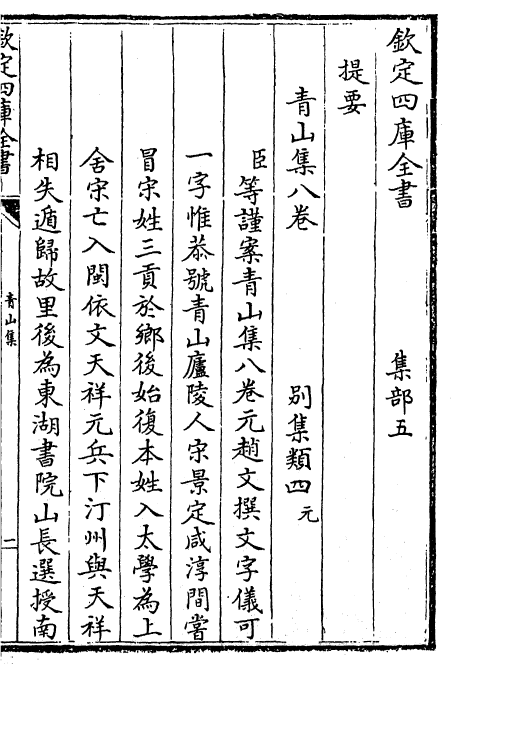 欽定四庫全書　集部五
提要
青山集八卷　別集類四元
臣等謹案青山集八卷元趙文撰文字儀可
一字惟恭號青山廬陵人宋景定咸淳間嘗
冒宋姓三貢於鄉後始復本姓入太學為上
舍宋亡入閩依文天祥元兵下汀州與天祥
相失遁歸故里後為東湖書院山長選授南
欽定四庫全書
青山集